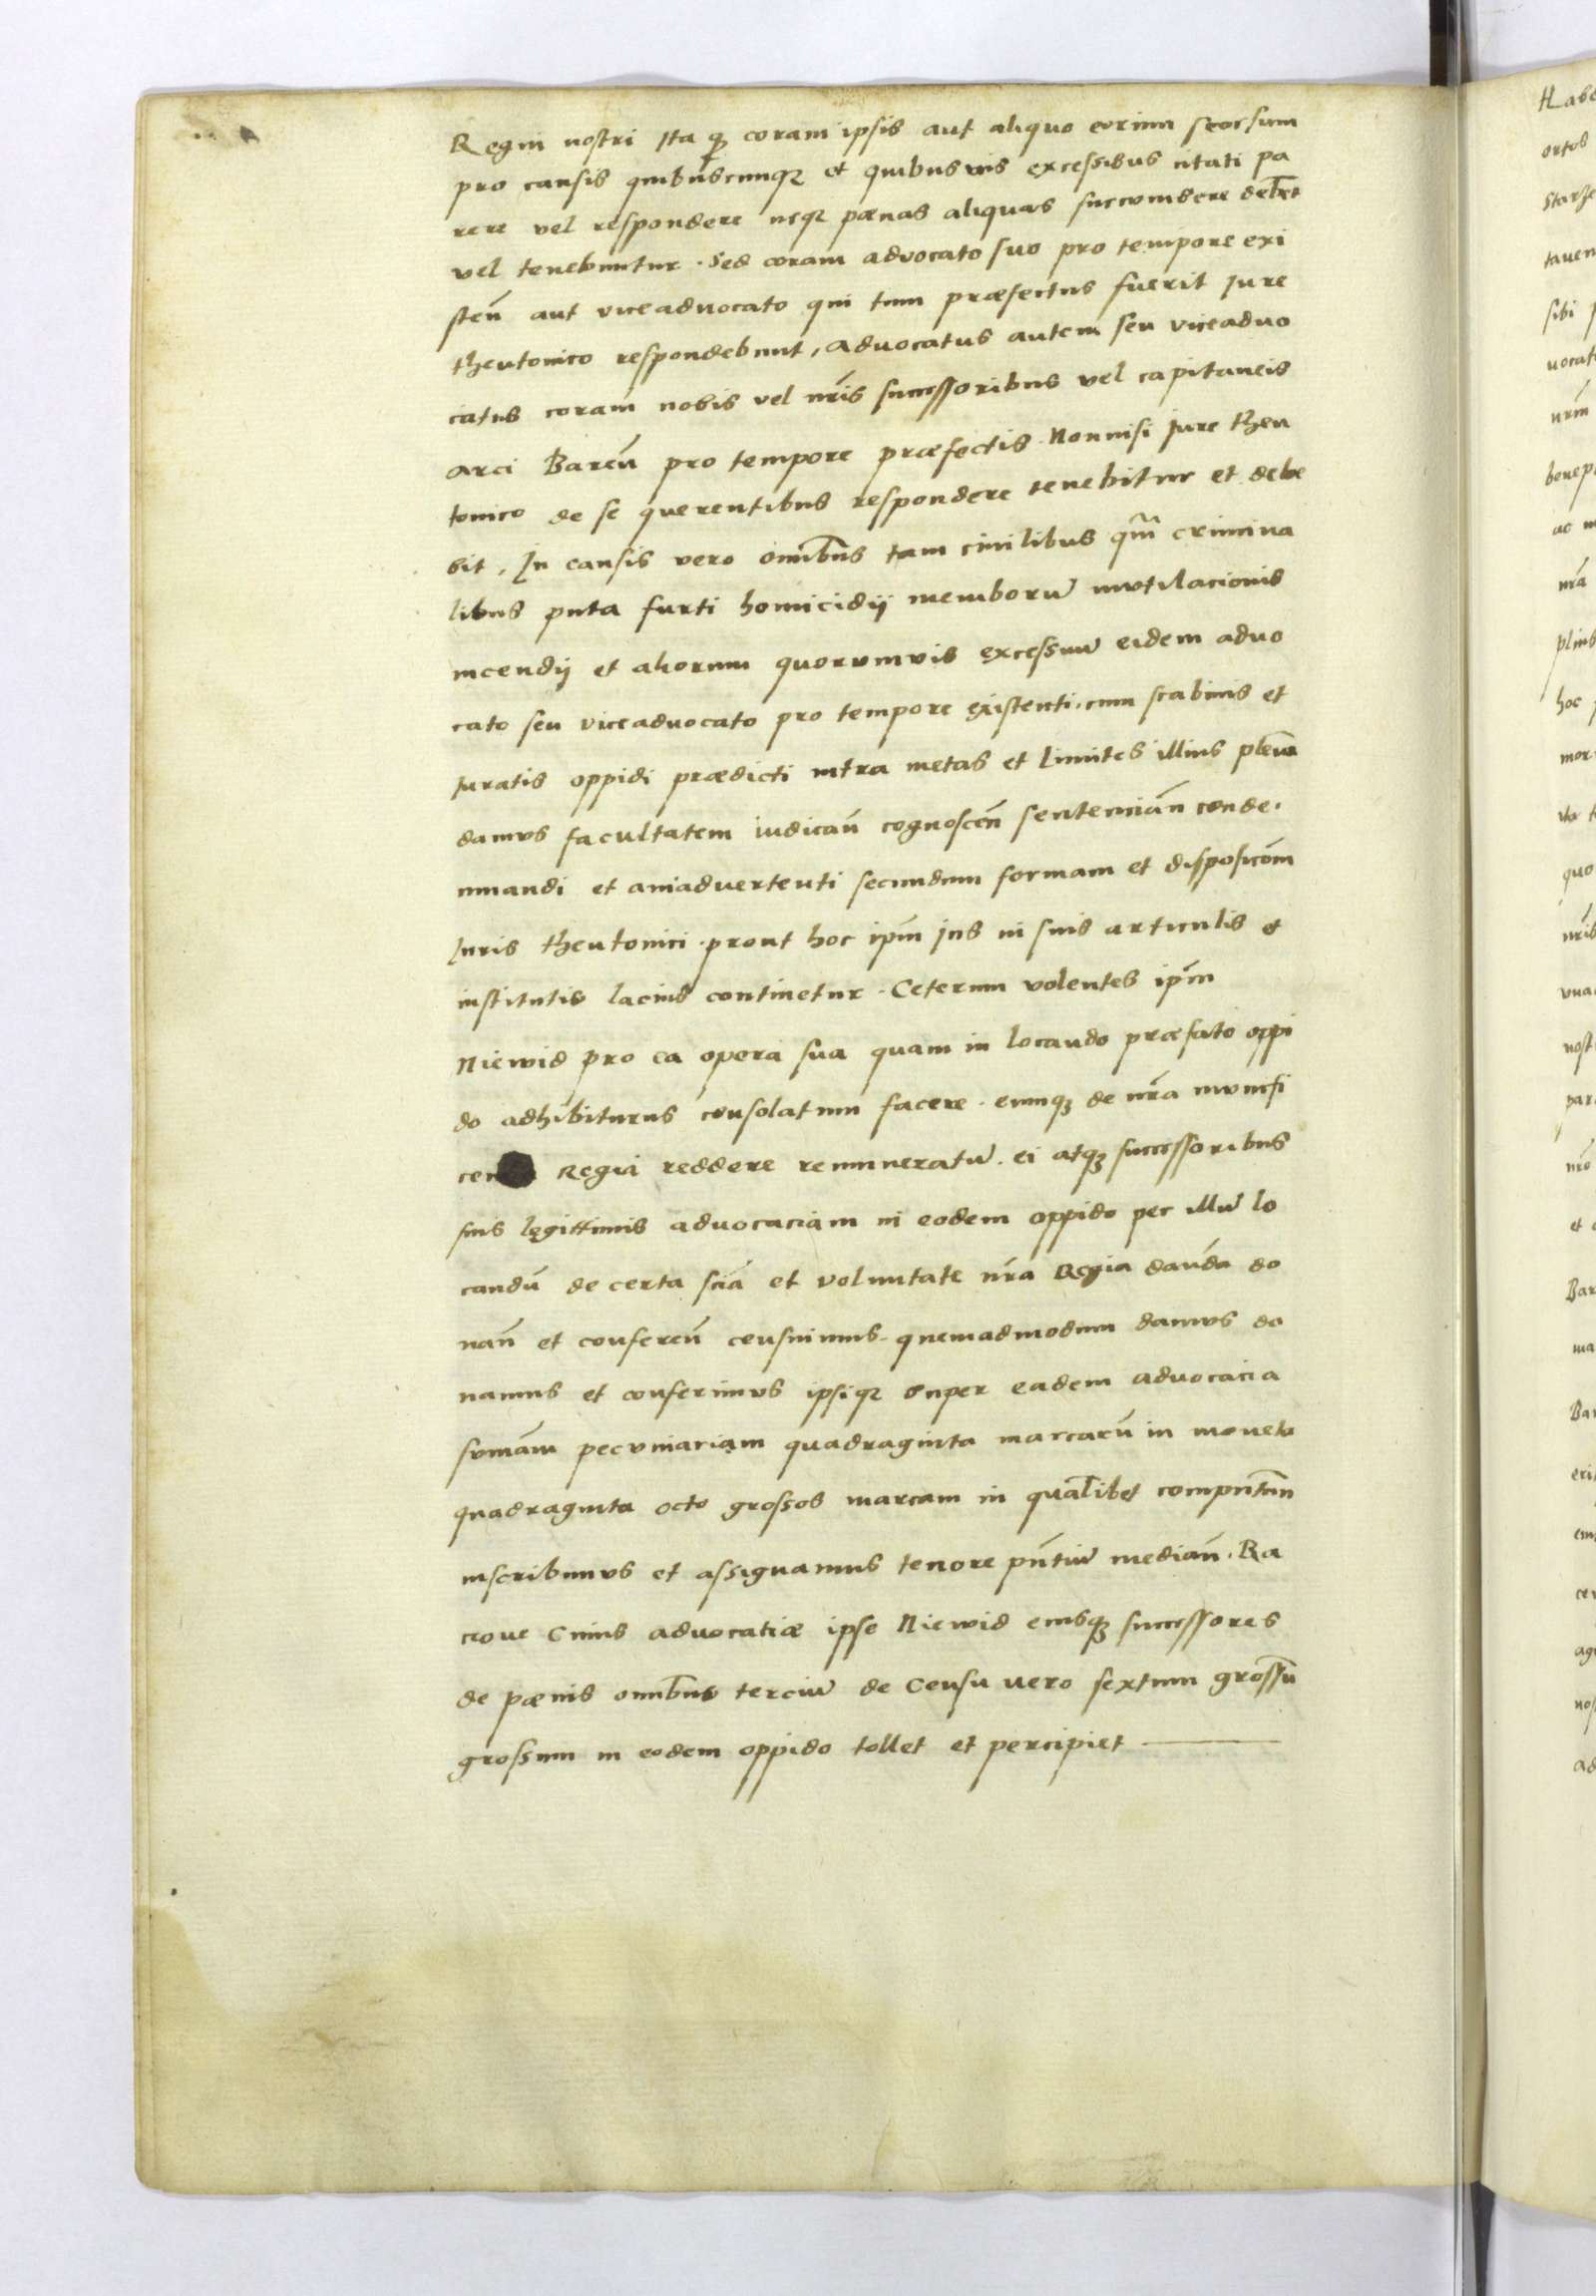 Regni nostri Ita q̃ coram ipsis aut aliquo eorum seorsum
pro causis quibuscunqꝫ et quibusvis excessibus citati pa
rere vel respondere neqꝫ pœnas aliquas succumbere debet
vel tenebuntur. Sed coram advocato suo pro tempore exi
steñ aut viceadvocato qui tum præfectus fuerit Jure
theutonico respondebunt, advocatus autem seu viceadvo
catus coram nobis vel nr̃is successoribus vel capitaneis
arci Bareñ pro tempore præfectis. Nonnisi Jure theu
tonico de se querentibus respondere tenebitur et debe
bit, In causis vero om̃ibus tam civilibus qm̃ crimina
libus puta furti homicidij memborū mutilacionis
incendij et aliorum quorumvis excessuū eidem advo
cato seu viceadvocato pro tempore existenti. cum scabinis et
Juratis oppidi prædicti intra metas et limites illius plen̄a
damus facultatem iudicañ cognosceñ sentenciañ conde.
mnandi et aniadvertenti secundum formam et disposicōm
Juris theutonici. prout hoc ipm̃ jus in suis articulis et
institutis lacius continetur. Ceterum volentes ipm̃
Niewid pro ea opera sua quam in locando præfato oppi
do adhibiturus consolatum facere. eumqꝫ de nr̃a munifi
cen Regia reddere remuneratū. ei atqꝫ successoribus
suis legittimis advocaciam in eodem oppido per illū lo
candū de certa scia et voluntate nr̃a Regia dandā do
nañ et confereñ censuimus. quemadmodum damus do
namus et conferimus ipsiqꝫ super eadem advocacia
sumam̃ pecuniariam quadraginta marcarū in moneta
quadraginta octo grossos marcam in qualibet computañ
inscribimus et assignamus tenore pñtiū mediañ. Ra
cione Cuius advocatiæ ipse Niewid eiusqꝫ successores
de pœnis omñibus terciū de Censu vero sextum grossū
grossum in eodem oppido tollet et percipiet